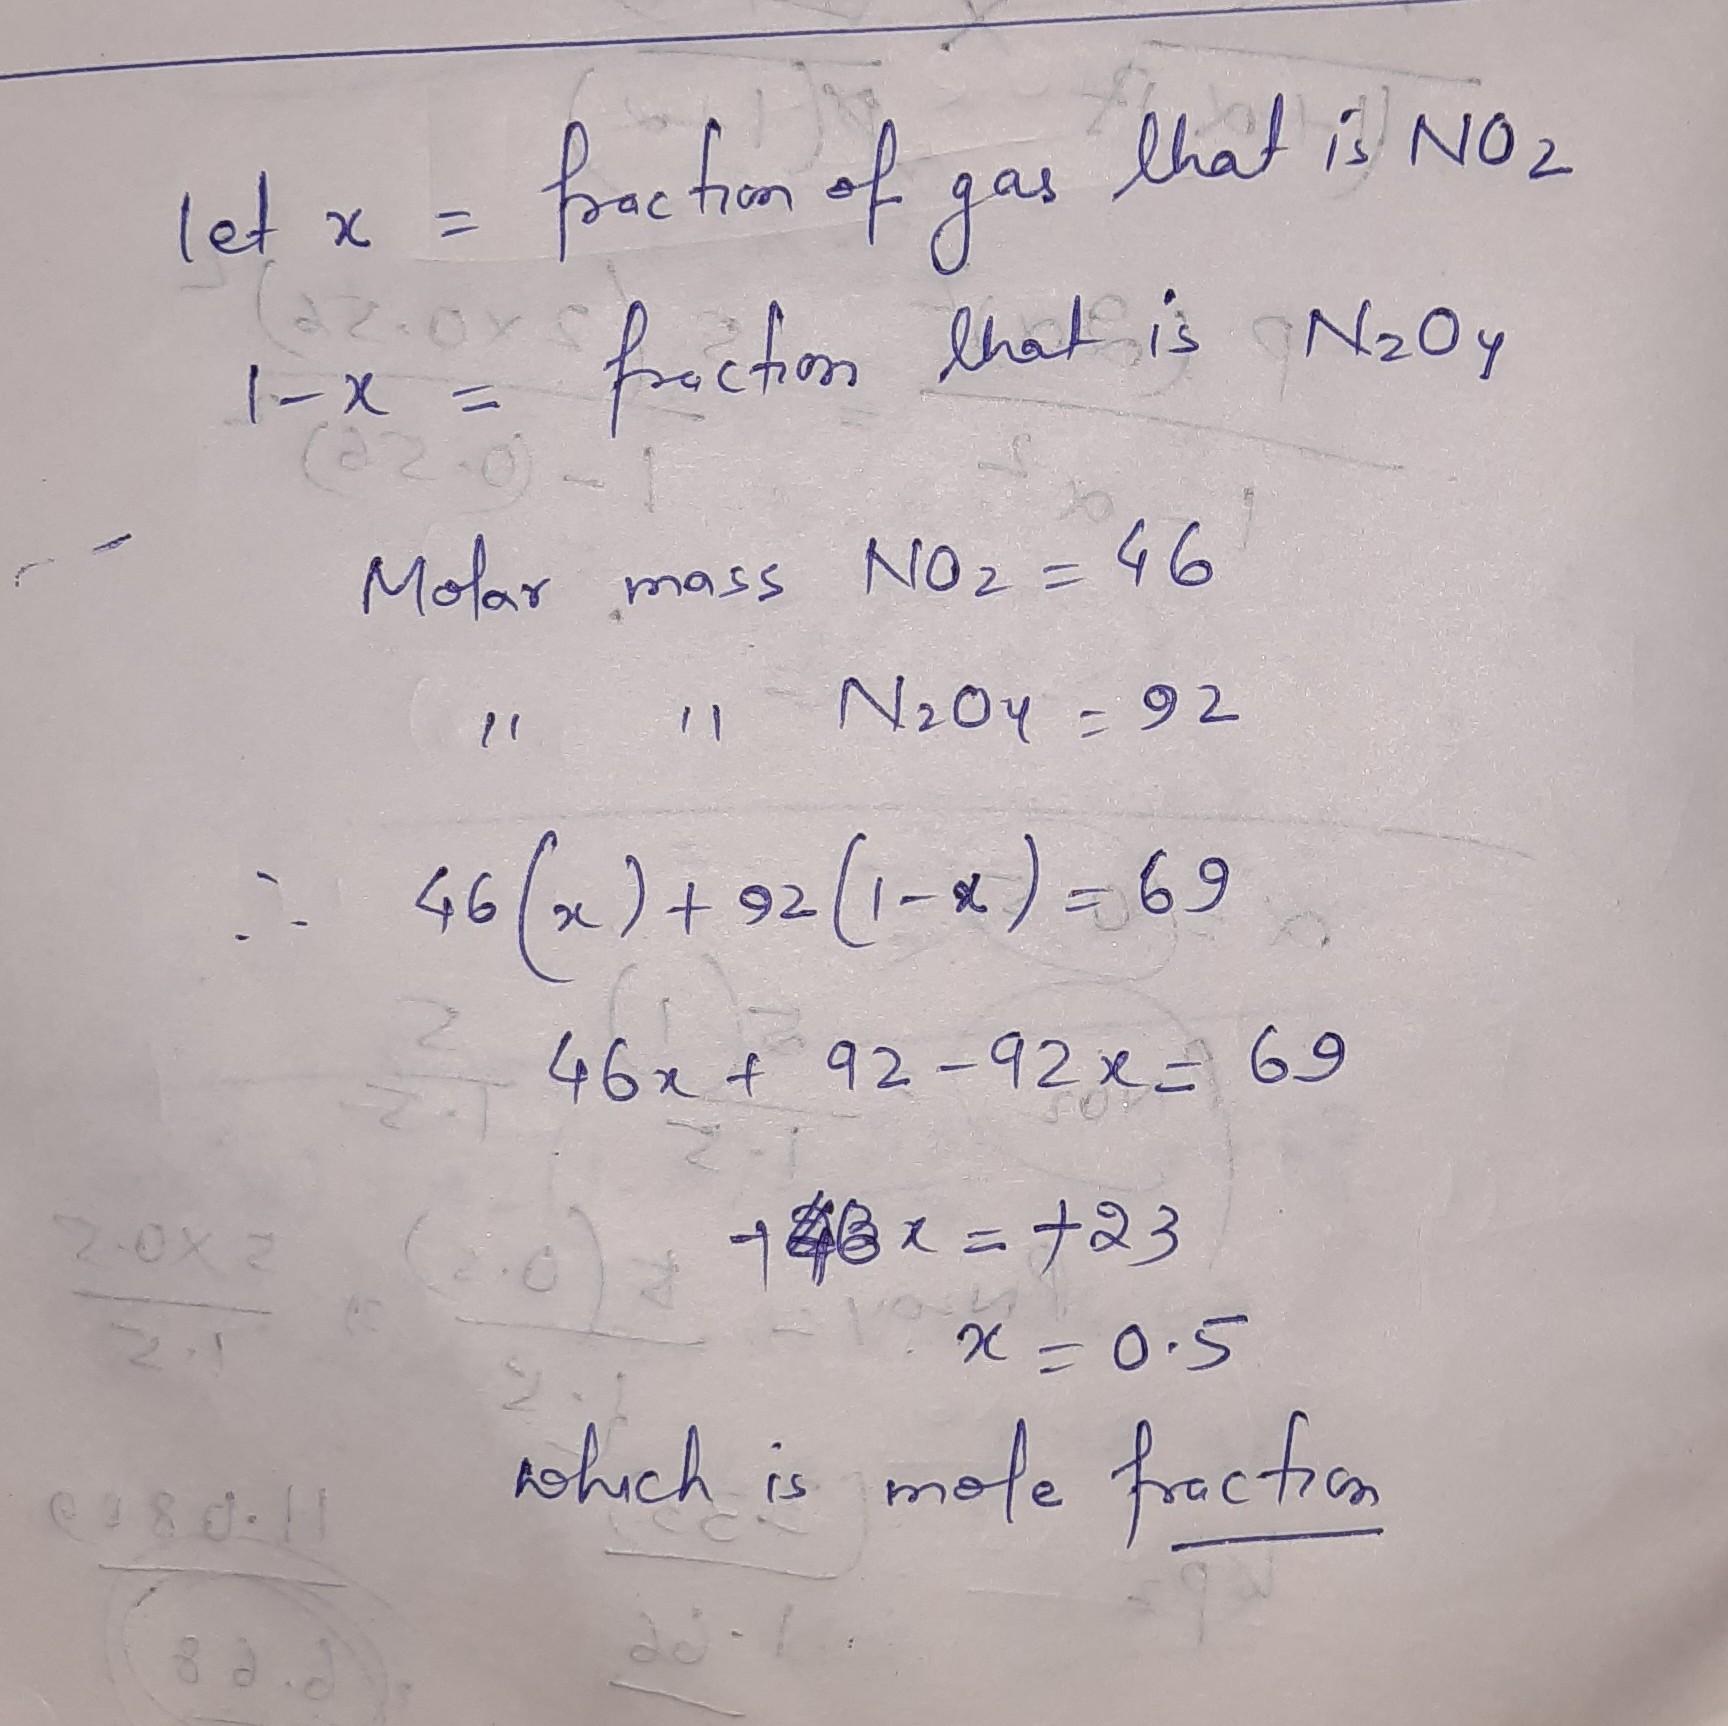 let x = fraction of gas that is NO2
1-x = fraction that is N2O4
Molar mass NO2 = 46
" " N2O4 = 92
∴ 46(x) + 92(1-x) = 69
46x + 92 - 92x = 69
x = +23
x = 0.5
which is mole fraction